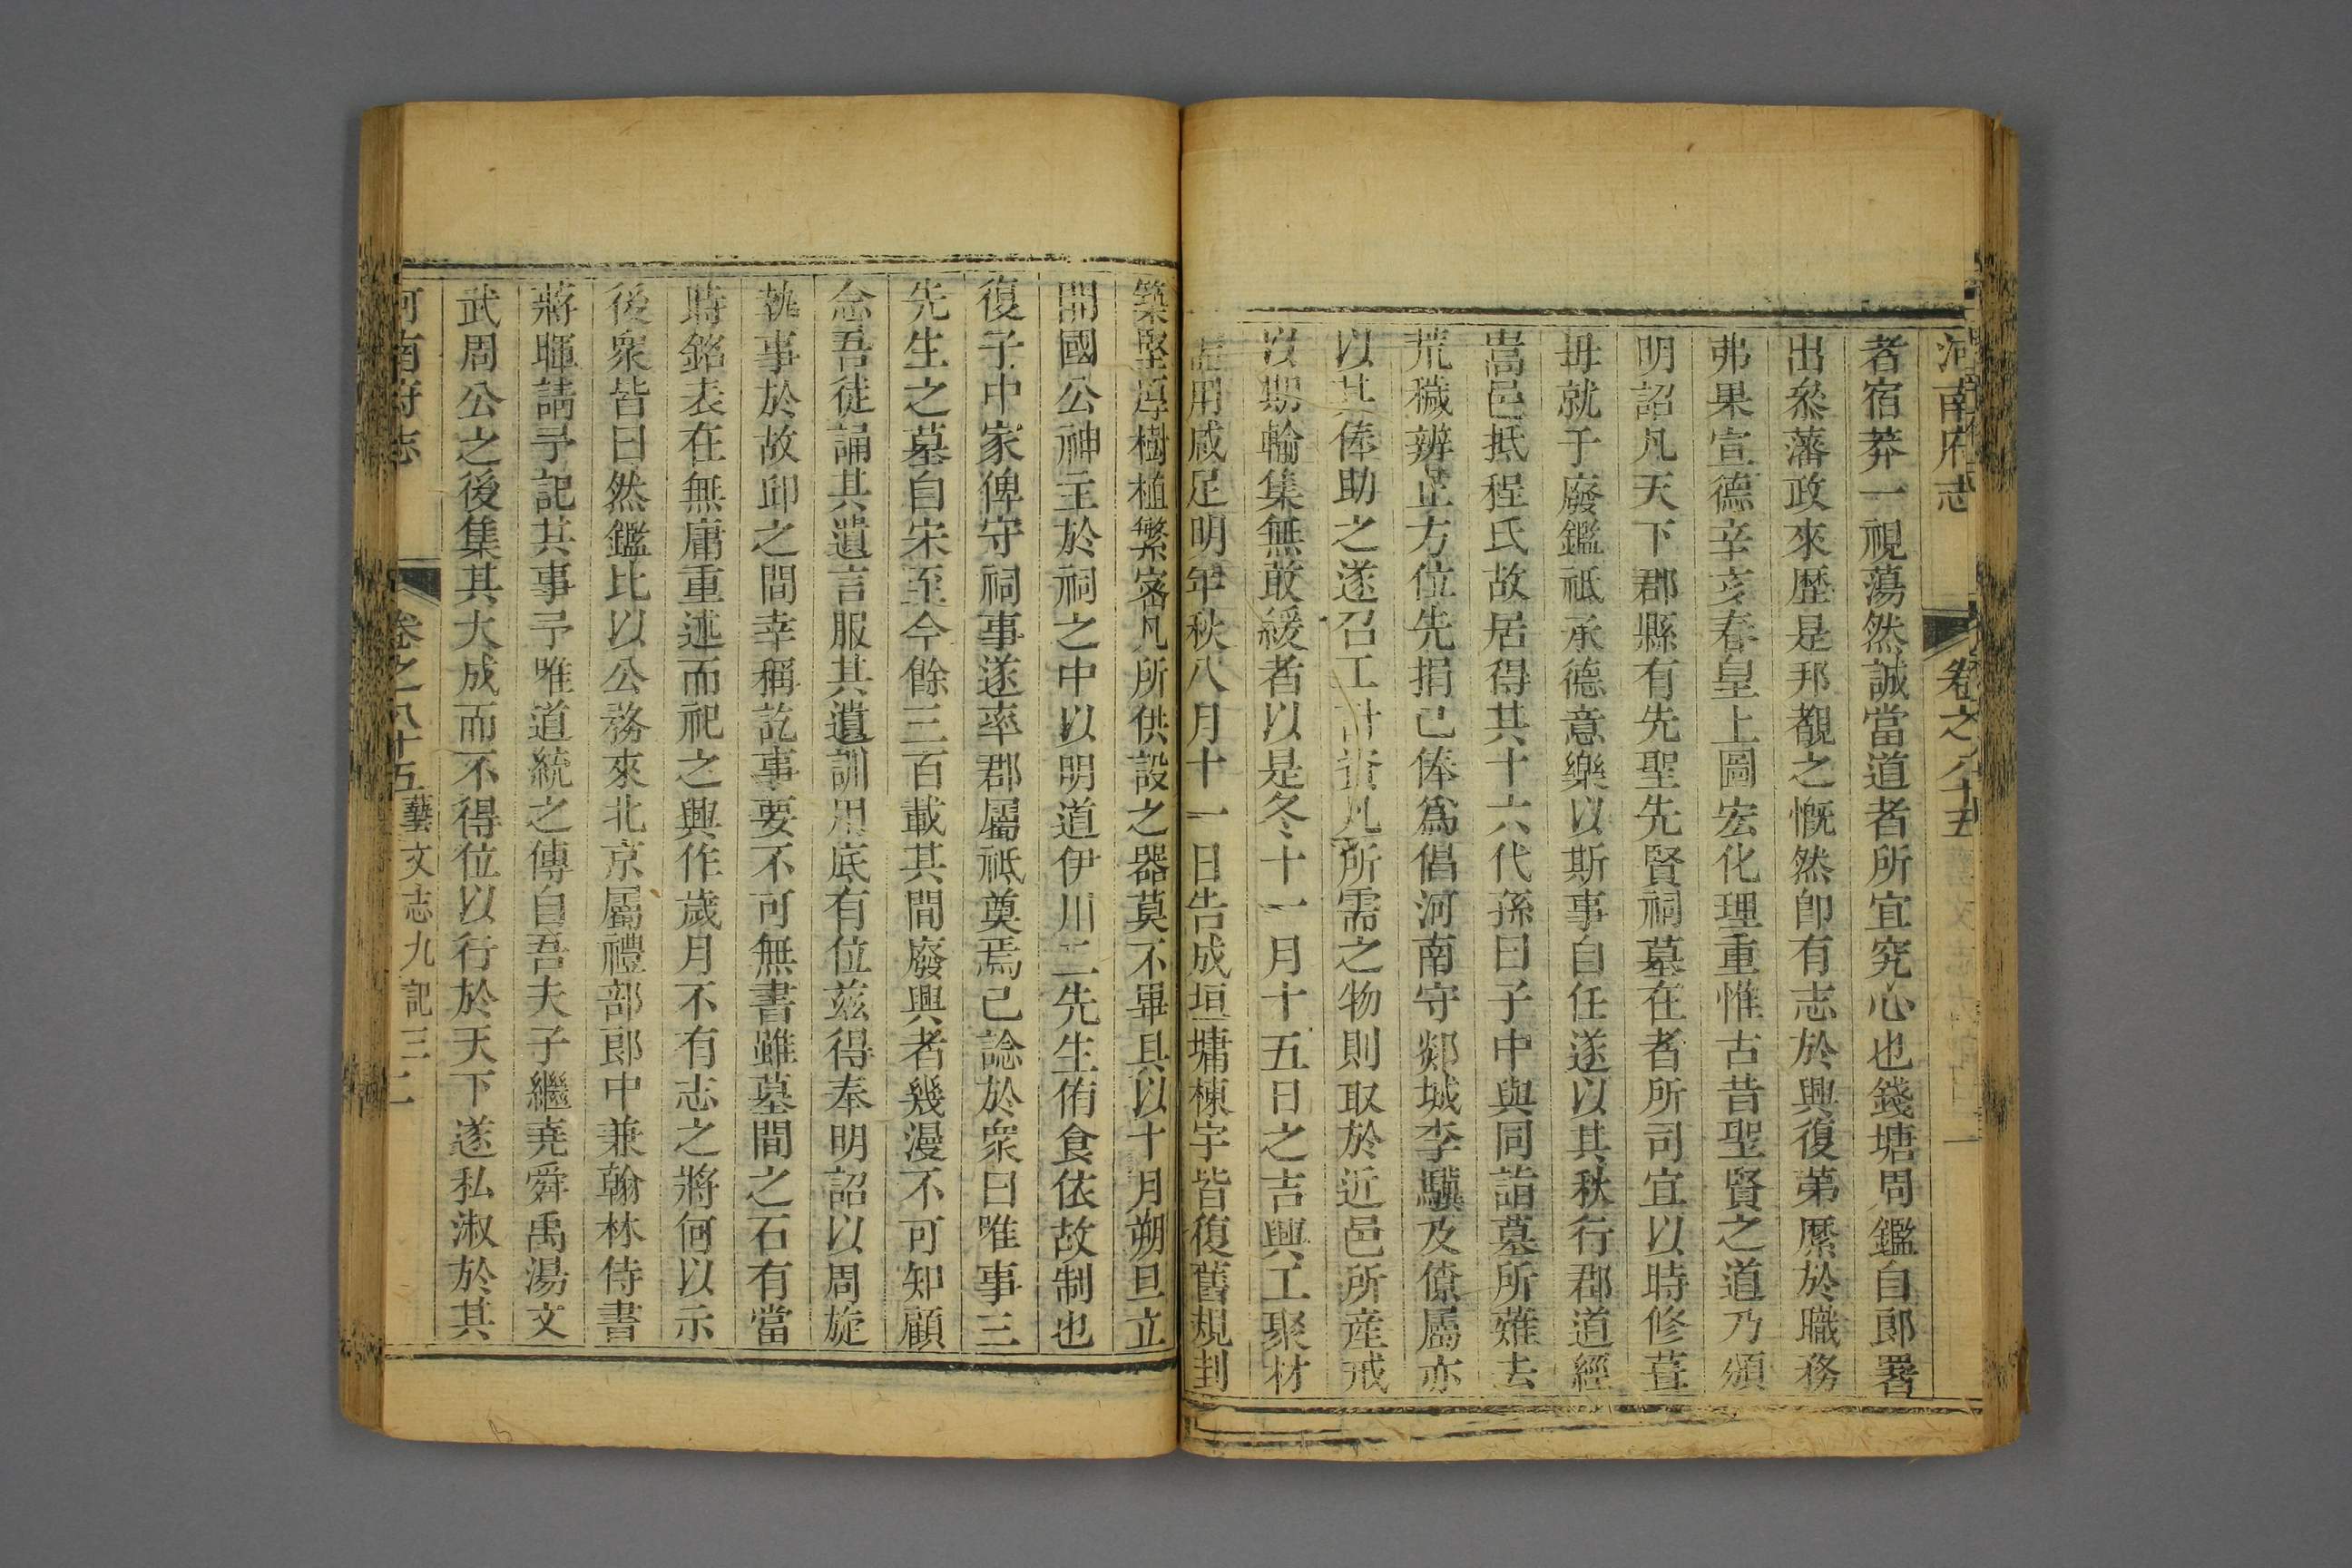 河南府志 卷之八十五
者宿莽一視蕩然誠當道者所宜究心也錢塘周鑑自郎署
出叅藩政來歷是邦覩之慨然卽有志於興復第縻於職務
弗果宣德辛亥春皇上圖宏化理重惟古昔聖賢之道乃頒
明詔凡天下郡縣有先聖先賢祠墓在者所司宜以時修葺
毋就于廢鑑祗承德意樂以斯事自任遂以其秋行郡道經
嵩邑抵程氏故居得其十六代孫曰子中與同詣墓所薙去
荒穢辨正方位先捐己俸為倡河南守郯城李驥及僚屬亦
以其俸助之遂召工計資凡所需之物則取於近邑所産戒
以期輸集無敢緩者以是冬十一月十五日之吉興工聚材
用咸足明年秋八月十一日告成垣墉棟宇皆復舊規封
築堅厚樹植繁密凡所供設之器莫不畢具以十月朔旦立
開國公神主於祠之中以明道伊川二先生侑食依故制也
復子中家俾守祠事遂率郡屬祗奠焉己諗於衆曰唯事三
先生之墓自宋至今餘三百載其間廢興者幾漫不可知顧
念吾徒誦其遺言服其遺訓用底有位兹得奉明詔以周旋
執事於故邱之間幸稱訖事要不可無書雖墓間之石有當
時銘表在無庸重述而祀之興作歲月不有志之將何以示
後衆皆曰然鑑比以公務來北京屬禮部郎中兼翰林侍書
蔣暉請予記其事予唯道統之傳自吾夫子繼堯舜禹湯文
武周公之後集其大成而不得位以行於天下遂私淑於其
河南府志 卷之八十五 藝文志九記三 二